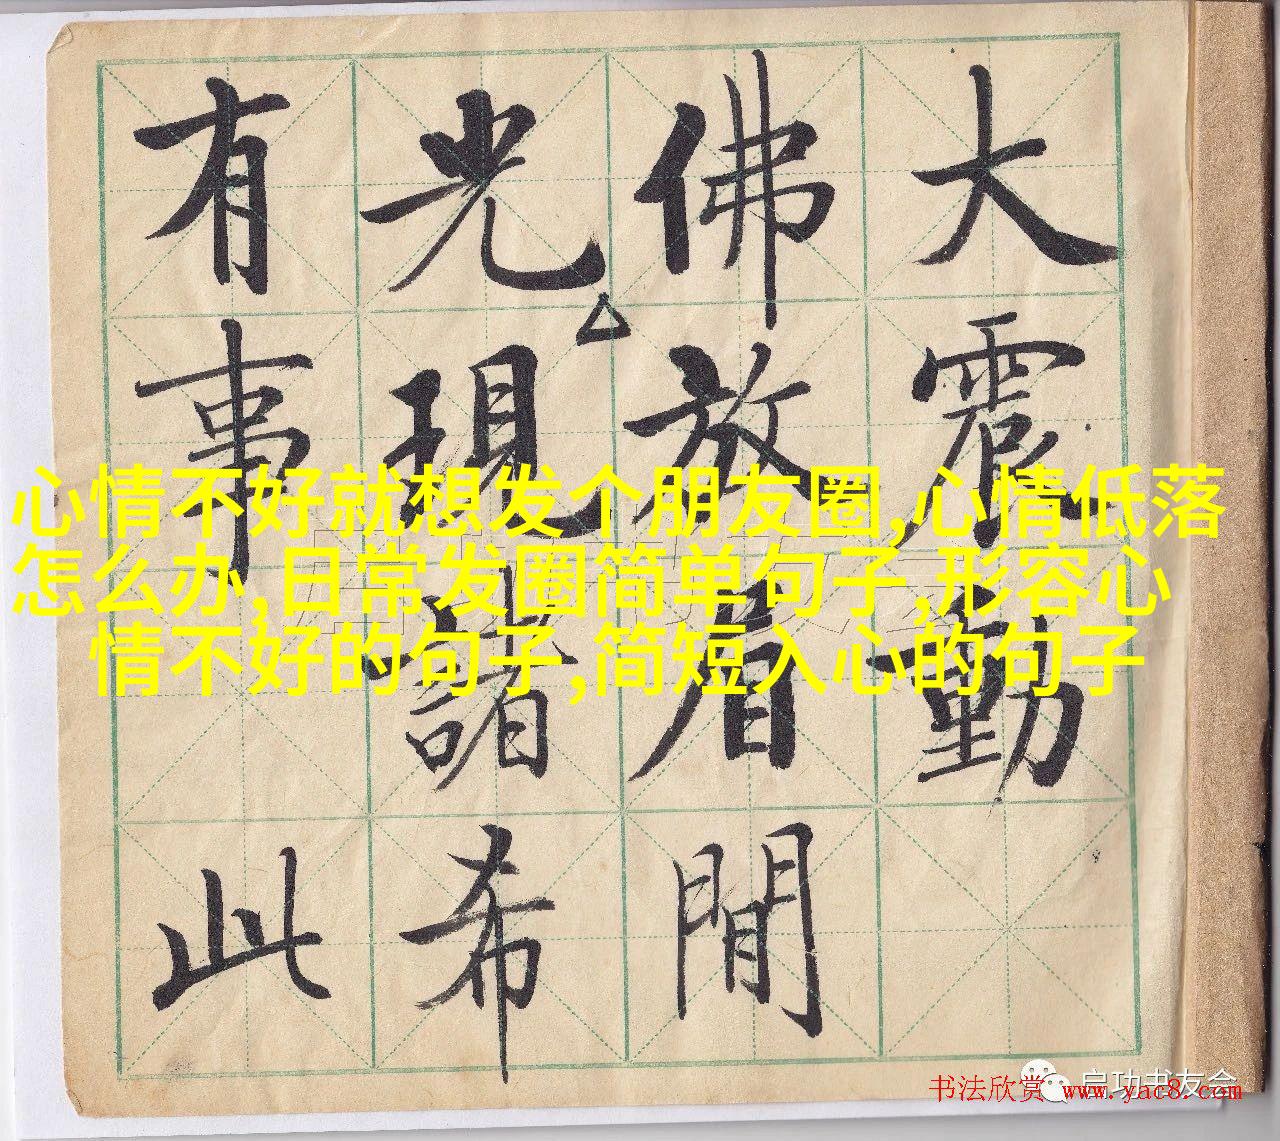 大震動
佛放眉間
光現諸希
有事 此
心情不好就想发个朋友圈,心情低落
怎么办,日常发圈简单句子,形容心
情不好的句子,简短入心的句子
启功书友会
书法欣赏 www.yac8.com